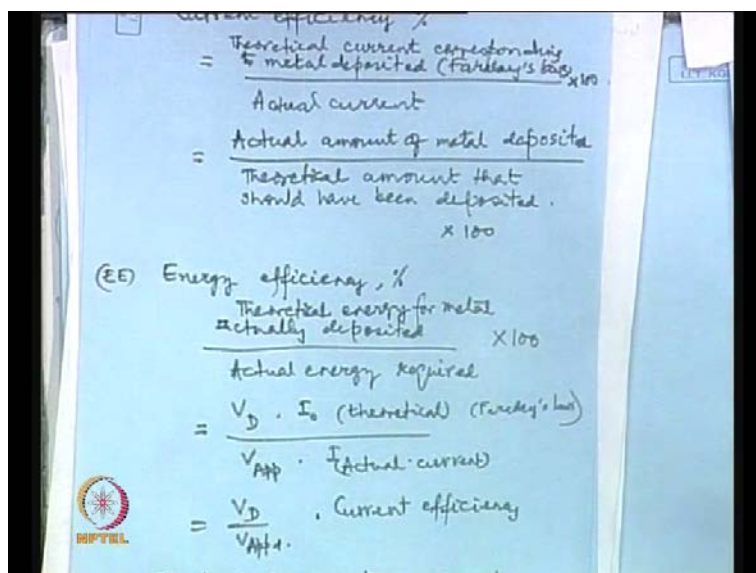 Current efficiency %
= Theoretical current corresponding
to metal deposited (Faraday's law) x100.
Actual current
= Actual amount of metal deposited
Theoretical amount that
should have been deposited.
x 100
(EE) Energy efficiency, %
Theoretical energy for metal
actually deposited x100
Actual energy required
= V_D . I_o (theoretical) (Faraday's laws)
V_App . I (Actual current)
= V_D . Current efficiency
V_App.
NPTEL
I.I.T. KG